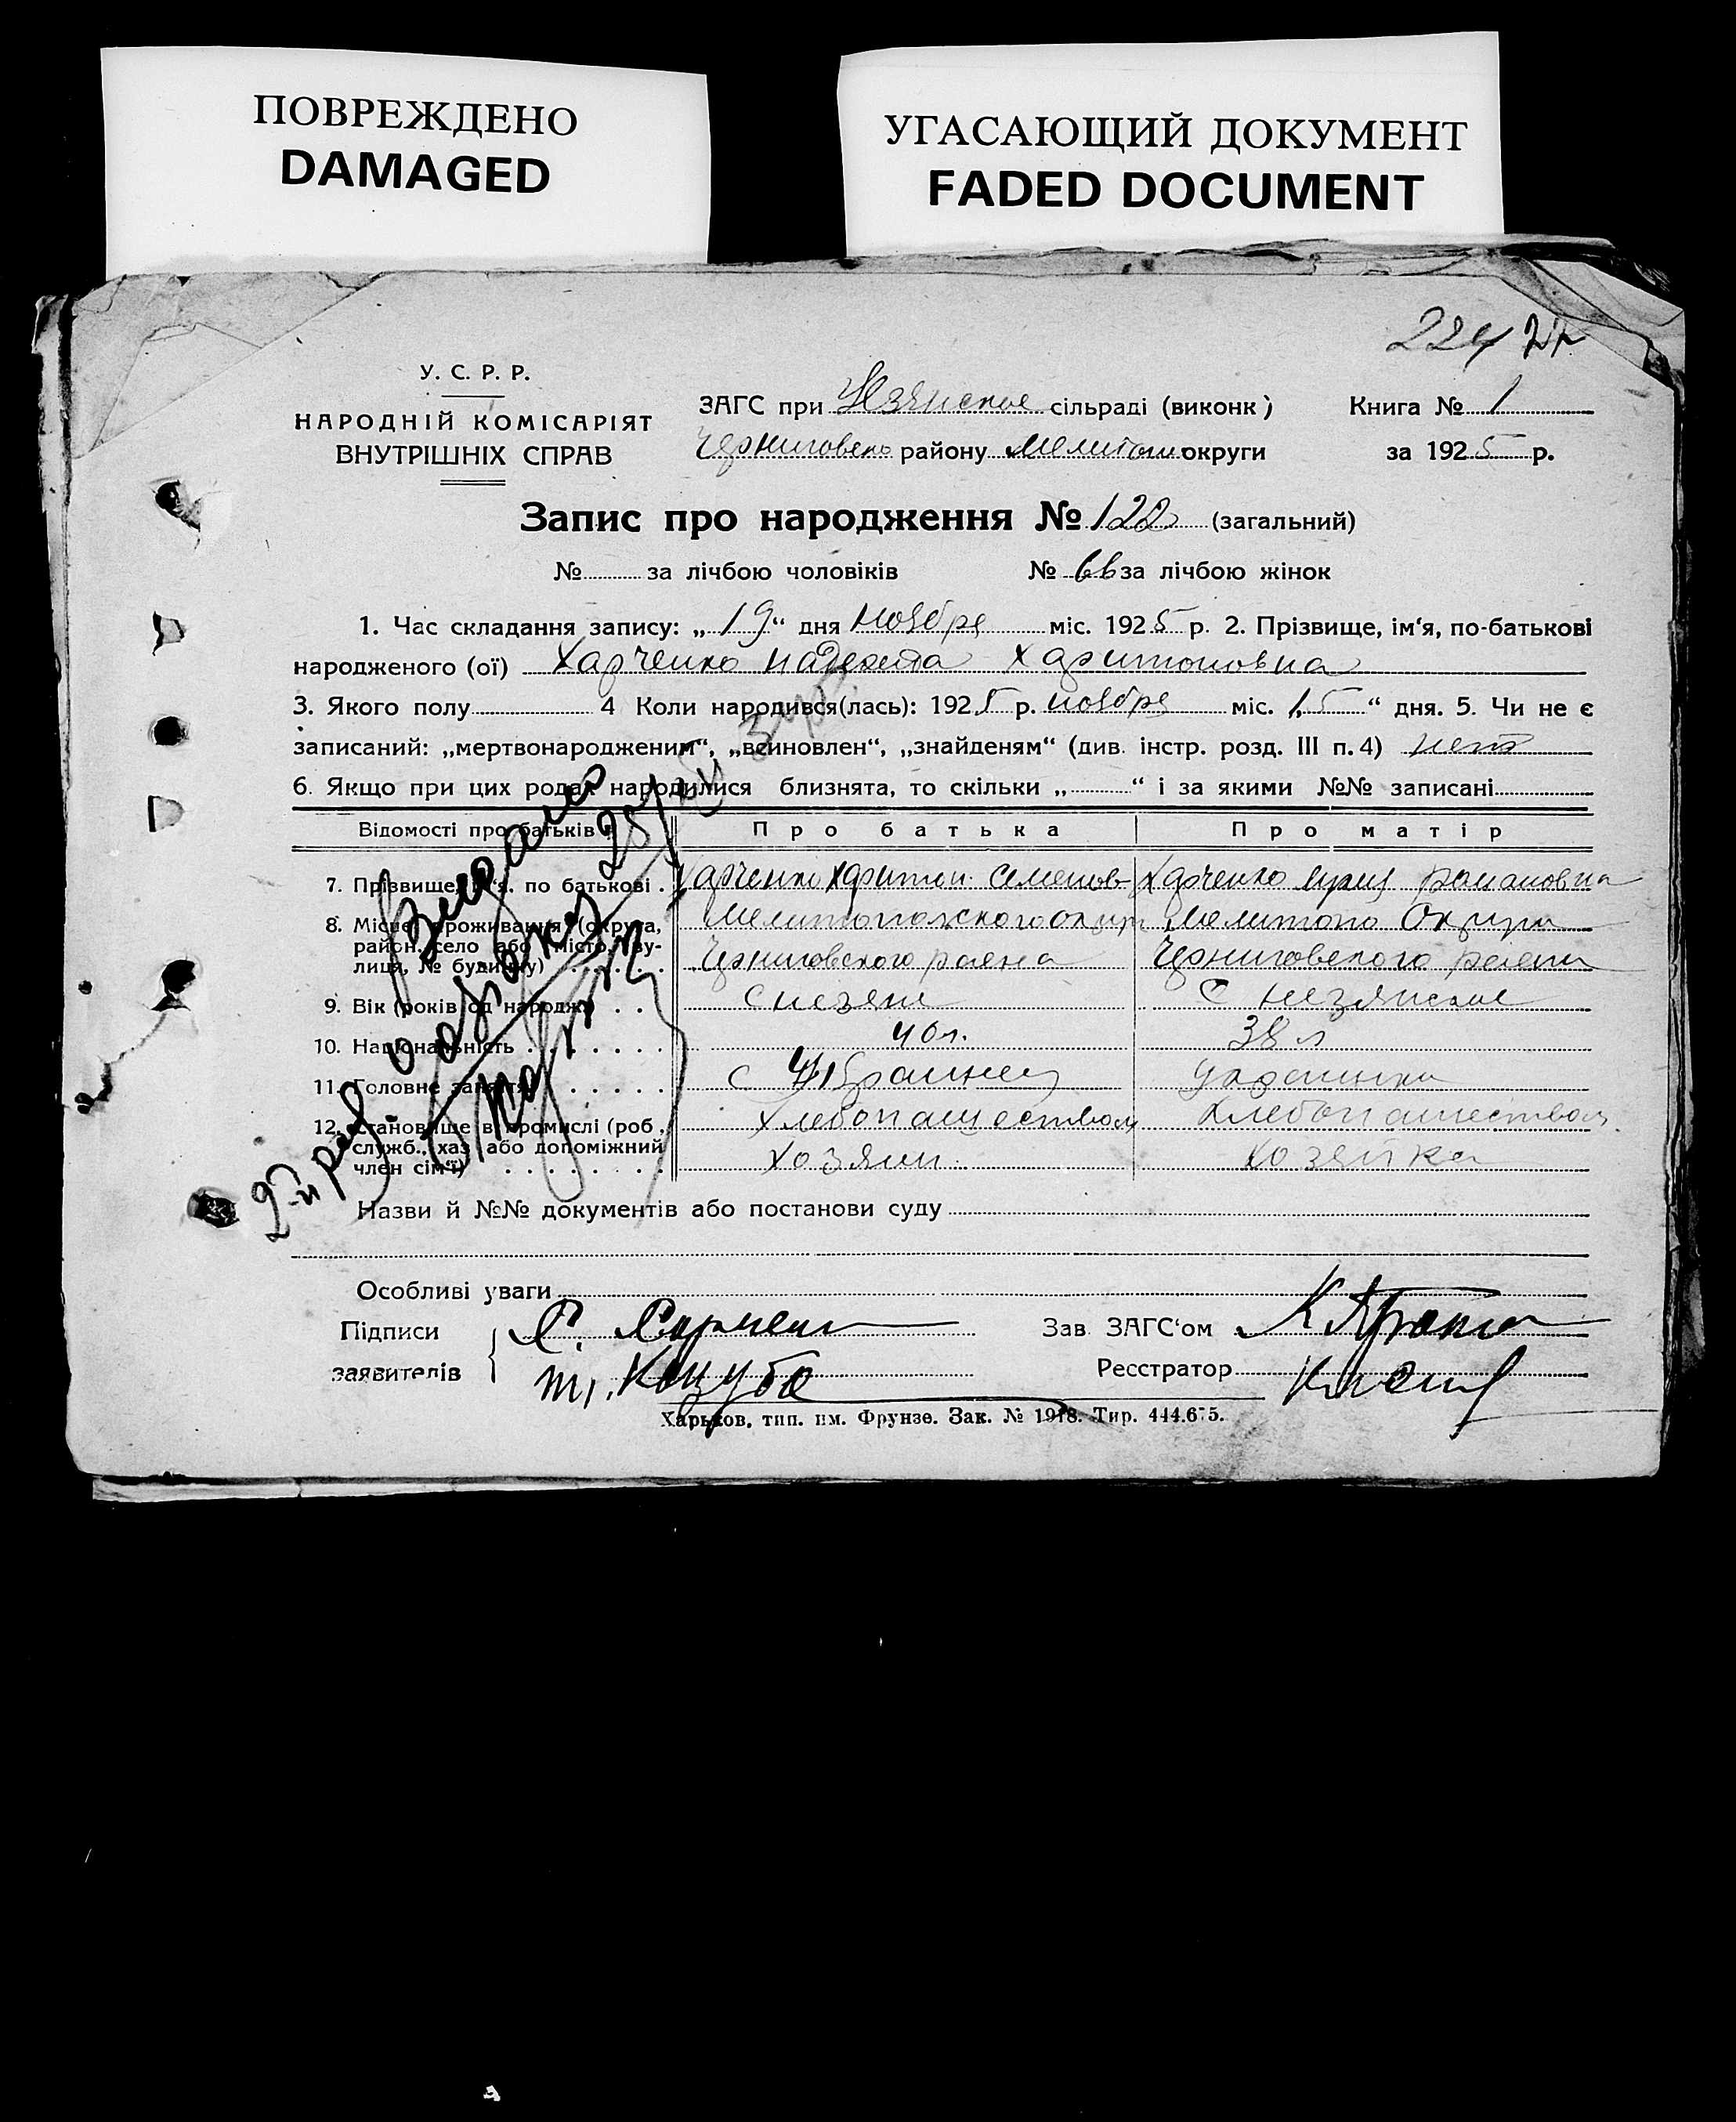 ПОВРЕЖДЕНО
DAMAGED
УГАСАЮЩИЙ ДОКУМЕНТ
FADED DOCUMENT
224
У. С. Р. Р.
НАРОДНІЙ КОМІСАРІЯТ
ВНУТРІШНІХ СПРАВ
ЗАГС при сільраді (виконк)
району округи
Книга № 1
за 1925 р.
Запис про народження № 122 (загальний)
№ за лічбою чоловіків № 66 за лічбою жінок
1. Час складання запису: „19“ дня ноября міс. 1925 р. 2. Прізвище, ім‘я, по-батькові
народженого (ої) Харченко Надежда Харитоновна
3. Якого полу 4 Коли народився(лась): 1925 р. ноября міс. „15“ дня. 5. Чи не є
записаний: „мертвонародженим“, „всиновлен“, „знайденям“ (див. інстр. розд. III п. 4) нет
6. Якщо при цих родах народилися близнята, то скільки „ “ і за якими №№ записані
Відомості про батьків Про батька Про матір
7. Прізвище, ім‘я, по батькові . Харченко Харитон Семенов- Харченко Романовна
8. Місце проживання (округа, Мелитопольского округ Мелитопо Округи
район, село або місто, ву-
лиця, № будинку) Черниговского раена Черниговского раена
9. Вік (років од народж.) . . с с
10. Національність . . . . . . . 40 л. 38 л
11. Головне заняття . . . . . . с Украинец Украинка
12. Становище в промислі (роб., Хлебопашеством Хлебопашеством
служб., хаз. або допоміжний
член сім‘ї) . . . . . . . . Хозяин Хозяйка
Видано
2-й раз
Назви й №№ документів або постанови суду
Особливі уваги
Підписи
заявителів
Зав. ЗАГС‘ом
Ресстратор
Харьков, тип. им. Фрунзе. Зак. № 1918. Тир. 444.675.